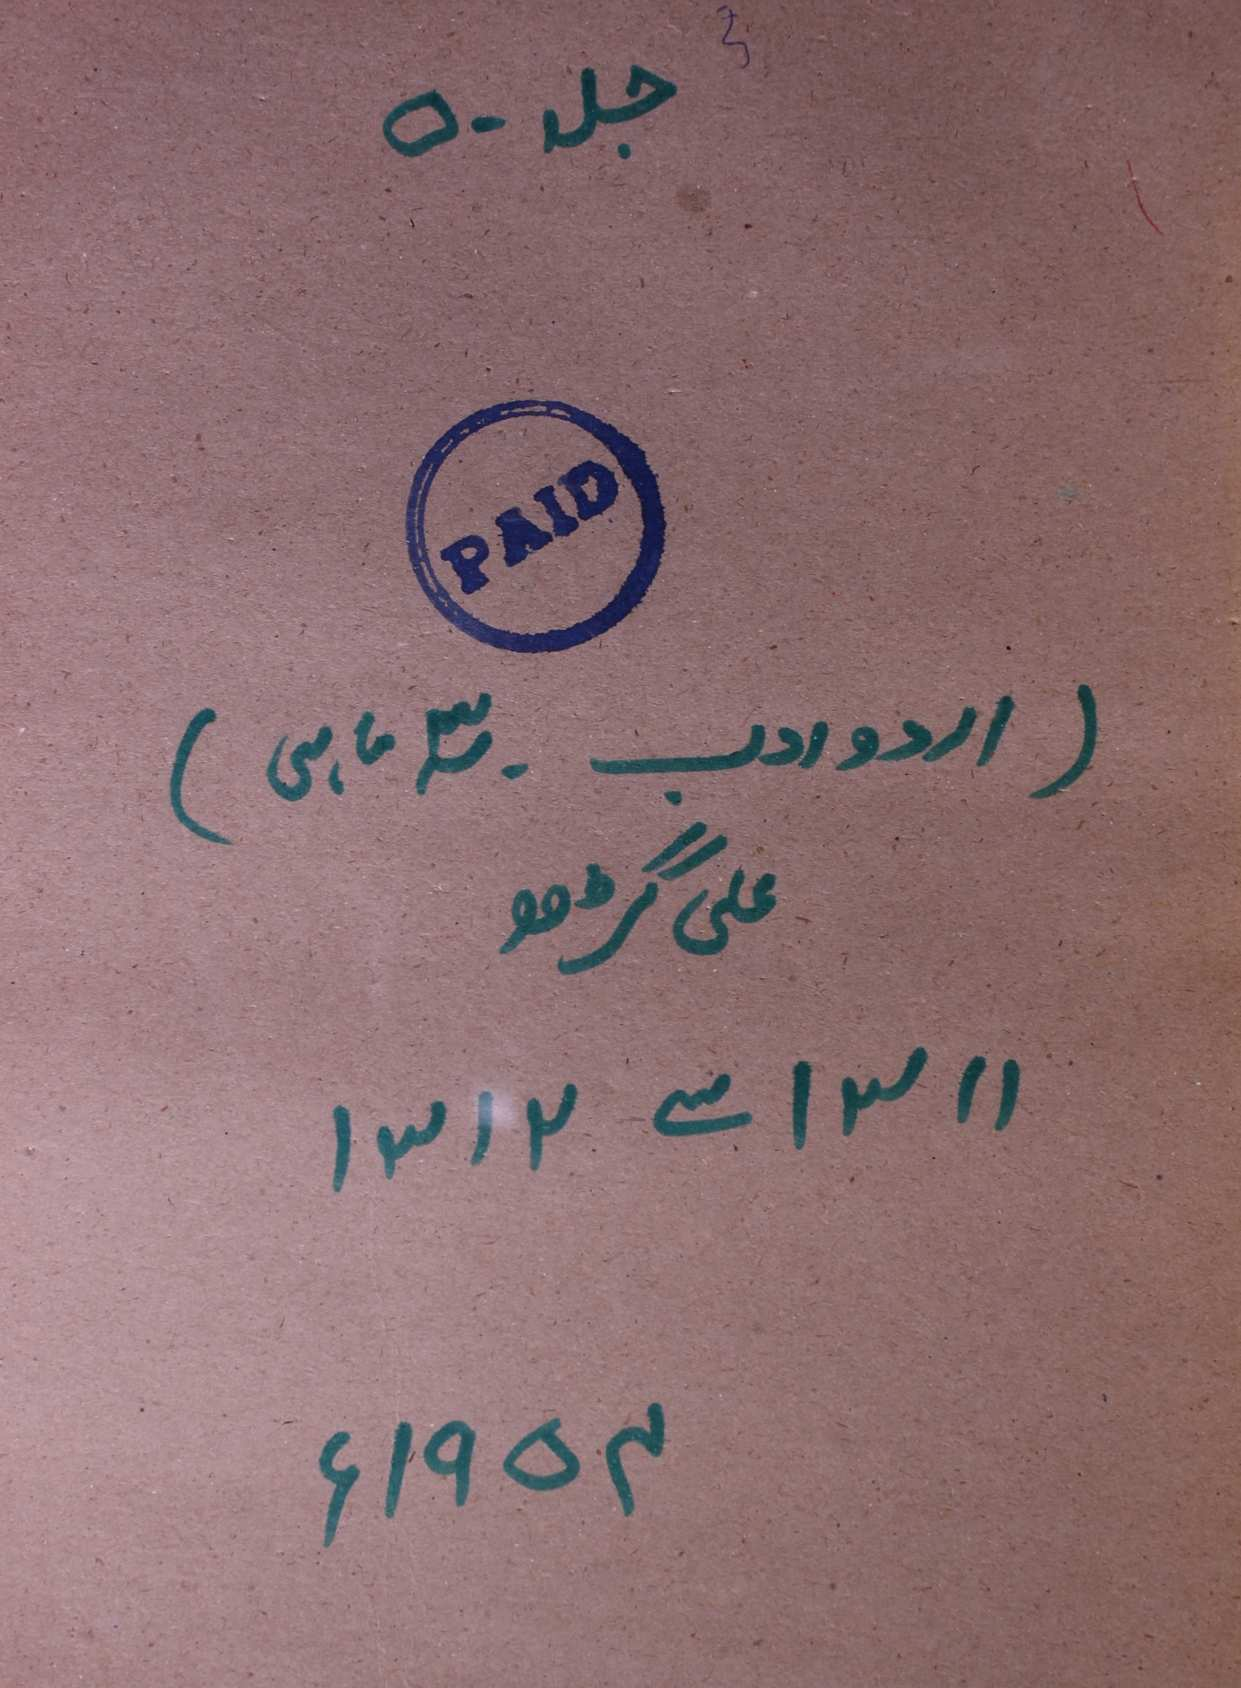 جلد - ۵
PAID
(اردو ادب - سہ ماہی)
علی گڑھ
۱۳۱۱ سے ۱۳۱۲
۱۹۵۴ء